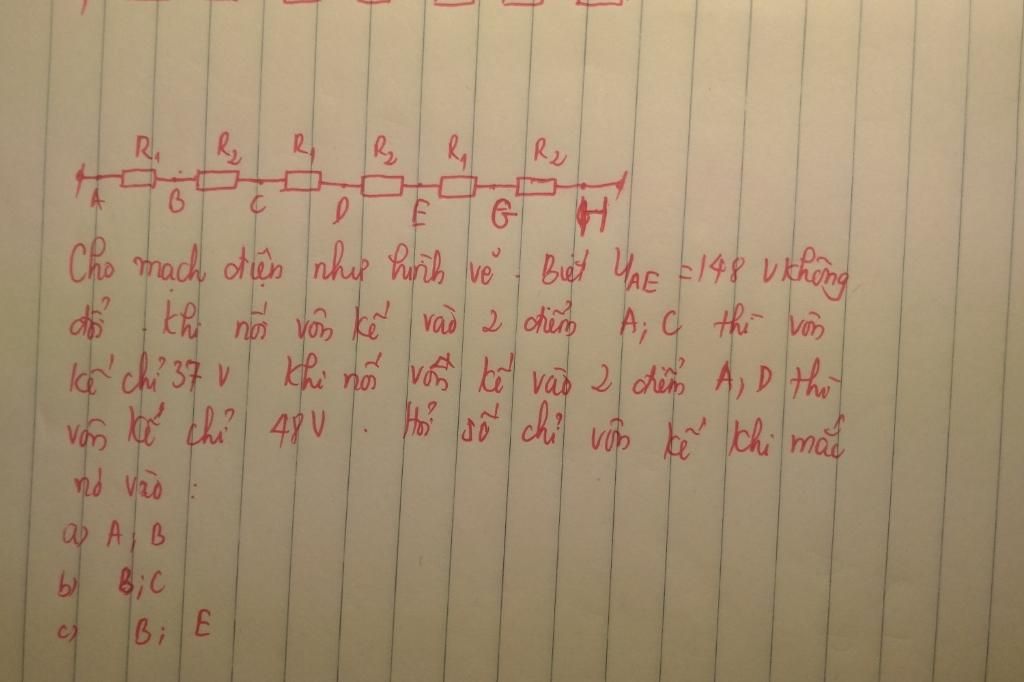 R₁ R₂ R₁ R₂ R₁ R₂
A B C D E G H
Cho mạch điện như hình vẽ. Biết UAE = 148 V không
đổi. Khi nối vôn kế vào 2 điểm A; C thì vôn
kế chỉ 37 V Khi nối vôn kế vào 2 điểm A, D thì
vôn kế chỉ 48 V. Hỏi số chỉ vôn kế khi mắc
nó vào:
a) A; B
b) B; C
c) B; E